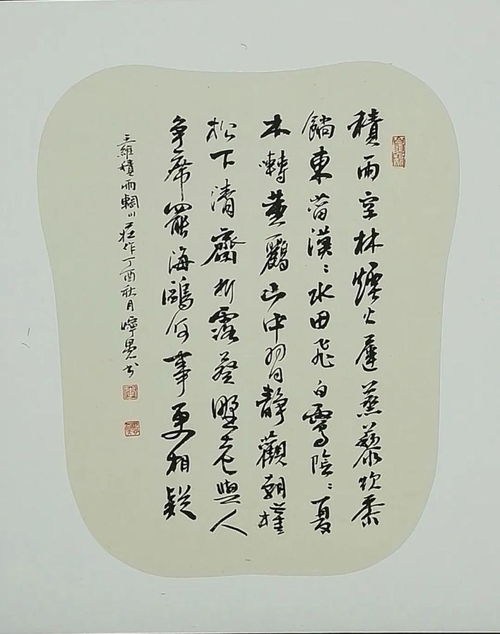 積雨空林煙火遲蒸藜炊黍
餉東菑漠〻水田飛白鷺陰〻夏
木囀黃鸝山中習靜觀朝槿
松下清齋折露葵野老與人
争席罷海鷗何事更相疑
王維積雨輞川莊作丁酉秋月書